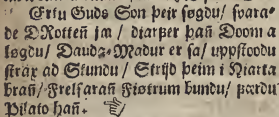 Ertu Guds Son þeir søgdu/ svara-
de DRotteñ ja/ diarfer þañ Doom a
løgdu/ Dauda-Madur er sa/ uppstoodu
strax ad Stundu/ Strijd þeim i Hiarta
brañ/ Frelsarañ Fiøtrum bundu/ færdu
Pilato hañ.